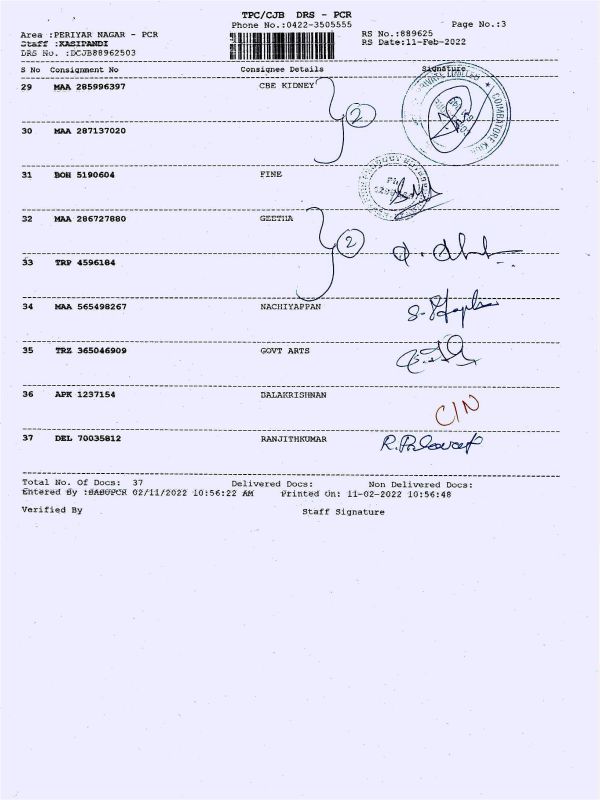 TPC/CJB DRS - PCR
Phone No.:0422-3505555 Page No.:3
Area :PERIYAR NAGAR - PCR RS No.:889625
Staff :KASIPANDI RS Date:11-Feb-2022
DRS No. :DCJB88962503
S No Consignment No Consignee Details Signature
29 MAA 285996397 CBE KIDNEY
2
30 MAA 287137020
31 BOH 5190604 FINE
32 MAA 286727880 GEETHA
2
33 TRP 4596184
34 MAA 565498267 NACHIYAPPAN
35 TRZ 365046909 GOVT ARTS
36 APK 1237154 BALAKRISHNAN
C/N
37 DEL 70035812 RANJITHKUMAR
Total No. Of Docs: 37 Delivered Docs: Non Delivered Docs:
Entered By :BABUPCR 02/11/2022 10:56:22 AM Printed On: 11-02-2022 10:56:48
Verified By Staff Signature